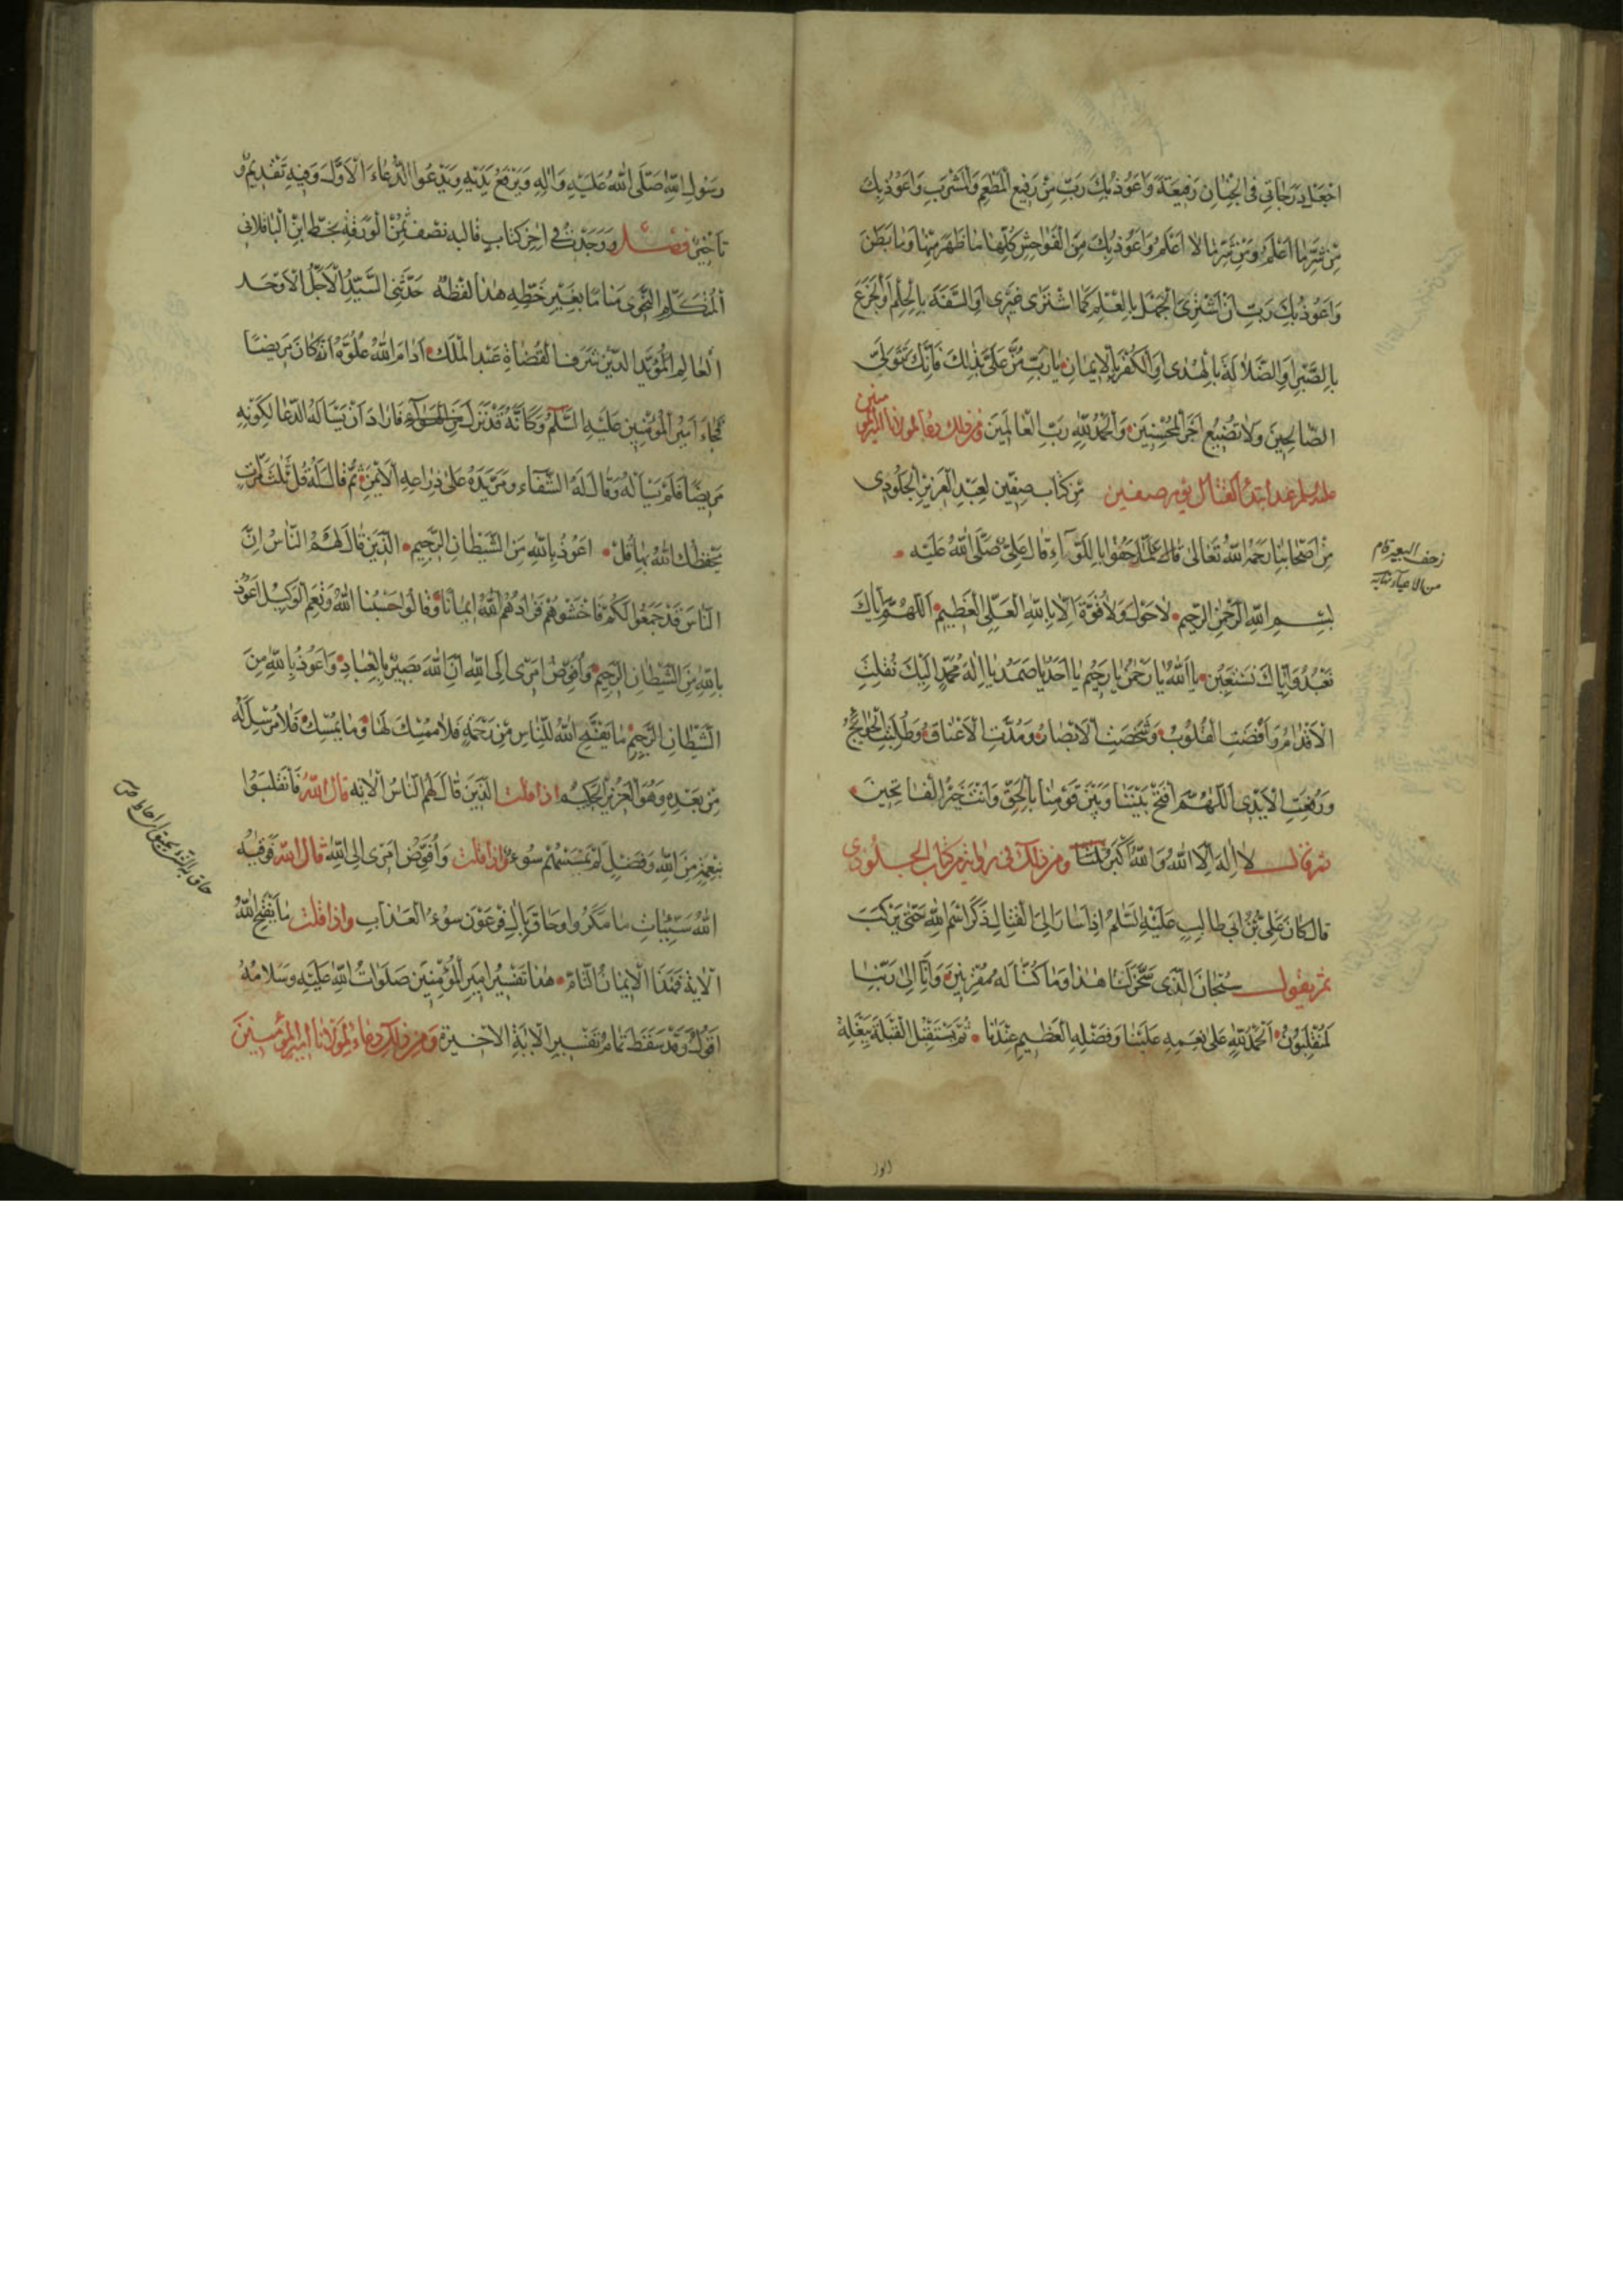 اجْعَلْ دَرَجَاتِي فِي الْجِنَانِ رَفِيعَةً وَاَعُوذُ بِكَ رَبِّ مِنْ رَفِيعِ الْمَطْعَمِ وَالْمَشْرَبِ وَاَعُوذُ بِكَ
مِنْ شَرِّ مَا اَعْلَمُ وَمِنْ شَرِّ مَا لَا اَعْلَمُ وَاَعُوذُ بِكَ مِنَ الْفَوَاحِشِ كُلِّهَا مَا ظَهَرَ مِنْهَا وَمَا بَطَنَ
وَاَعُوذُ بِكَ رَبِّ اَنْ اَشْتَرِيَ الْجَهْلَ بِالْعِلْمِ كَمَا اشْتَرَى غَيْرِي اَوِ السَّفَهَ بِالْحِلْمِ اَوِ الْجَزَعَ
بِالصَّبْرِ اَوِ الضَّلَالَةَ بِالْهُدَى اَوِ الْكُفْرَ بِالْاِيمَانِ يَا رَبِّ مُنَّ عَلَيَّ بِذٰلِكَ فَاِنَّكَ تَتَوَلَّى
الصَّالِحِينَ وَلَا تُضِيعُ اَجْرَ الْمُحْسِنِينَ وَالْحَمْدُ لِلّٰهِ رَبِّ الْعَالَمِينَ ومن ذلك دعاء لمولانا امير المؤمنين
عليه السلم عند ابتداء القتال يوم صفين مِنْ كِتَابِ صِفِّينَ لِعَبْدِ الْعَزِيزِ الْجَلُودِي
مِنْ اَصْحَابِنَا رَحِمَهُ اللّٰهُ تَعَالَى قَالَ فَلَمَّا زَحَفُوا بِاللِّوَاءِ قَالَ عَلِيٌّ صَلَّى اللّٰهُ عَلَيْهِ
زحف البعير قام
من الاعياء
بِسْمِ اللّٰهِ الرَّحْمٰنِ الرَّحِيمِ لَا حَوْلَ وَلَا قُوَّةَ اِلَّا بِاللّٰهِ الْعَلِيِّ الْعَظِيمِ اَللّٰهُمَّ اِيَّاكَ
نَعْبُدُ وَاِيَّاكَ نَسْتَعِينُ يَا اَللّٰهُ يَا رَحْمٰنُ يَا رَحِيمُ يَا اَحَدُ يَا صَمَدُ يَا اِلٰهَ مُحَمَّدٍ اِلَيْكَ نُقِلَتِ
الْاَقْدَامُ وَاَفْضَتِ الْقُلُوبُ وَشَخَصَتِ الْاَبْصَارُ وَمُدَّتِ الْاَعْنَاقُ وَطُلِبَتِ الْحَوَائِجُ
وَرُفِعَتِ الْاَيْدِي اَللّٰهُمَّ افْتَحْ بَيْنَنَا وَبَيْنَ قَوْمِنَا بِالْحَقِّ وَاَنْتَ خَيْرُ الْفَاتِحِينَ
ثم قال لَا اِلٰهَ اِلَّا اللّٰهُ وَاللّٰهُ اَكْبَرُ ثَلٰثًا ومن ذلك في رواية من كتاب الجلودي
قَالَ كَانَ عَلِيُّ بْنُ اَبِي طَالِبٍ عَلَيْهِ السَّلَمُ اِذَا سَارَ اِلَى الْقِتَالِ ذَكَرَ اسْمَ اللّٰهِ حَتَّى يَرْكَبَ
ثم يقول سُبْحَانَ الَّذِي سَخَّرَ لَنَا هٰذَا وَمَا كُنَّا لَهُ مُقْرِنِينَ وَاِنَّا اِلَى رَبِّنَا
لَمُنْقَلِبُونَ اَلْحَمْدُ لِلّٰهِ عَلَى نِعَمِهِ عَلَيْنَا وَفَضْلِهِ الْعَظِيمِ عِنْدَنَا ثُمَّ يَسْتَقْبِلُ الْقِبْلَةَ بِبَغْلَةِ
رَسُولِ اللّٰهِ صَلَّى اللّٰهُ عَلَيْهِ وَاٰلِهِ وَيَرْفَعُ يَدَيْهِ وَيَدْعُوا الدُّعَاءَ الْاَوَّلَ وَفِيهِ تَقْدِيمٌ وَ
تَاْخِيرٌ فصل وَوَجَدْتُ فِي اٰخِرِ كِتَابٍ قَالَبُهُ نِصْفُ ثُمُنِ الْوَرَقَةِ بِخَطِّ ابْنِ الْبَاقِلَانِي
الْمُتَكَلِّمِ النَّحْوِي مَنَامًا بِغَيْرِ خَطِّهِ هٰذَا لَفْظُهُ حَدَّثَنِي السَّيِّدُ الْاَجَلُّ الْاَوْحَدُ
الْعَالِمُ الْمُؤَيَّدُ الدِّينِ شَرَفُ الْقُضَاةِ عَبْدُ الْمَلِكِ اَدَامَ اللّٰهُ عُلُوَّهُ اَنَّهُ كَانَ مَرِيضًا
فَجَاءَ اَمِيرُ الْمُؤْمِنِينَ عَلَيْهِ السَّلَمُ وَكَاَنَّهُ قَدْ نَزَلَ مِنَ الْهَوَاءِ فَاَرَادَ اَنْ يَسْاَلَهُ الدُّعَا لِكَوْنِهِ
مَرِيضًا فَلَمْ يَسْاَلْهُ وَقَالَ لَهُ الشِّفَاءَ وَمَرَّ يَدَهُ عَلَى ذِرَاعِهِ الْاَيْمَنِ ثُمَّ قَالَ لَهُ قُلْ ثَلٰثَ مَرَّاتٍ
يَحْفَظْكَ اللّٰهُ بِهَا قُلْ اَعُوذُ بِاللّٰهِ مِنَ الشَّيْطَانِ الرَّجِيمِ اَلَّذِينَ قَالَ لَهُمُ النَّاسُ اِنَّ
النَّاسَ قَدْ جَمَعُوا لَكُمْ فَاخْشَوْهُمْ فَزَادَهُمُ اللّٰهُ اِيمَانًا وَقَالُوا حَسْبُنَا اللّٰهُ وَنِعْمَ الْوَكِيلُ اَعُوذُ
بِاللّٰهِ مِنَ الشَّيْطَانِ الرَّجِيمِ وَاُفَوِّضُ اَمْرِي اِلَى اللّٰهِ اِنَّ اللّٰهَ بَصِيرٌ بِالْعِبَادِ وَاَعُوذُ بِاللّٰهِ مِنَ
الشَّيْطَانِ الرَّجِيمِ مَا يَفْتَحِ اللّٰهُ لِلنَّاسِ مِنْ رَحْمَةٍ فَلَا مُمْسِكَ لَهَا وَمَا يُمْسِكْ فَلَا مُرْسِلَ لَهُ
مِنْ بَعْدِهِ وَهُوَ الْعَزِيزُ الْحَكِيمُ اذا قلت اَلَّذِينَ قَالَ لَهُمُ النَّاسُ الْاٰيَةَ قال اللّٰه فَانْقَلَبُوا
بِنِعْمَةٍ مِنَ اللّٰهِ وَفَضْلٍ لَمْ يَمْسَسْهُمْ سُوءٌ واذا قلت وَاُفَوِّضُ اَمْرِي اِلَى اللّٰهِ قال اللّٰه فَوَقٰيهُ
اللّٰهُ سَيِّئَاتِ مَا مَكَرُوا وَحَاقَ بِاٰلِ فِرْعَوْنَ سُوءُ الْعَذَابِ واذا قلت مَا يَفْتَحِ اللّٰهُ
الْاٰيَةَ فَهٰذَا الْاِيمَانُ التَّامُّ هٰذَا تَفْسِيرُ اَمِيرِ الْمُؤْمِنِينَ صَلَوَاتُ اللّٰهِ عَلَيْهِ وَسَلَامُهُ
اَقُولُ وَقَدْ سَقَطَ تَمَامُ تَفْسِيرِ الْاٰيَةِ الْاَخِيرَةِ ومن ذلك دعاء لمولانا امير المؤمنين